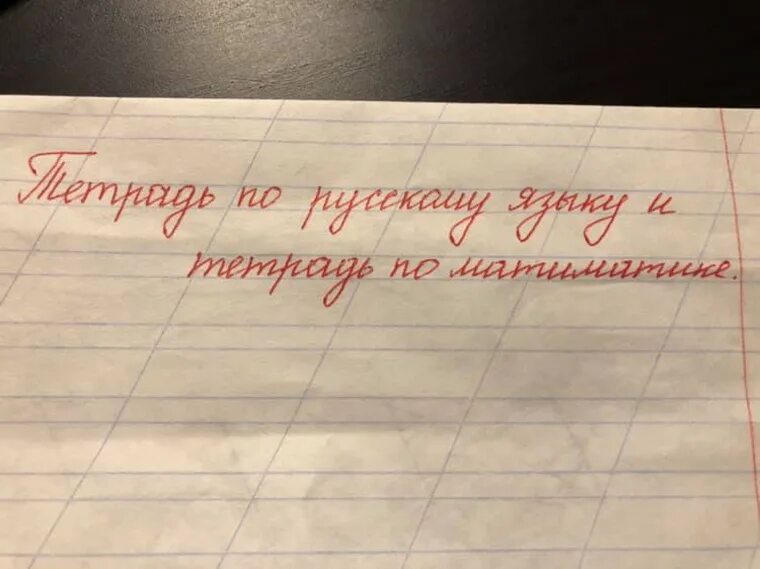 Тетрадь по русскому языку и
тетрадь по матиматике.